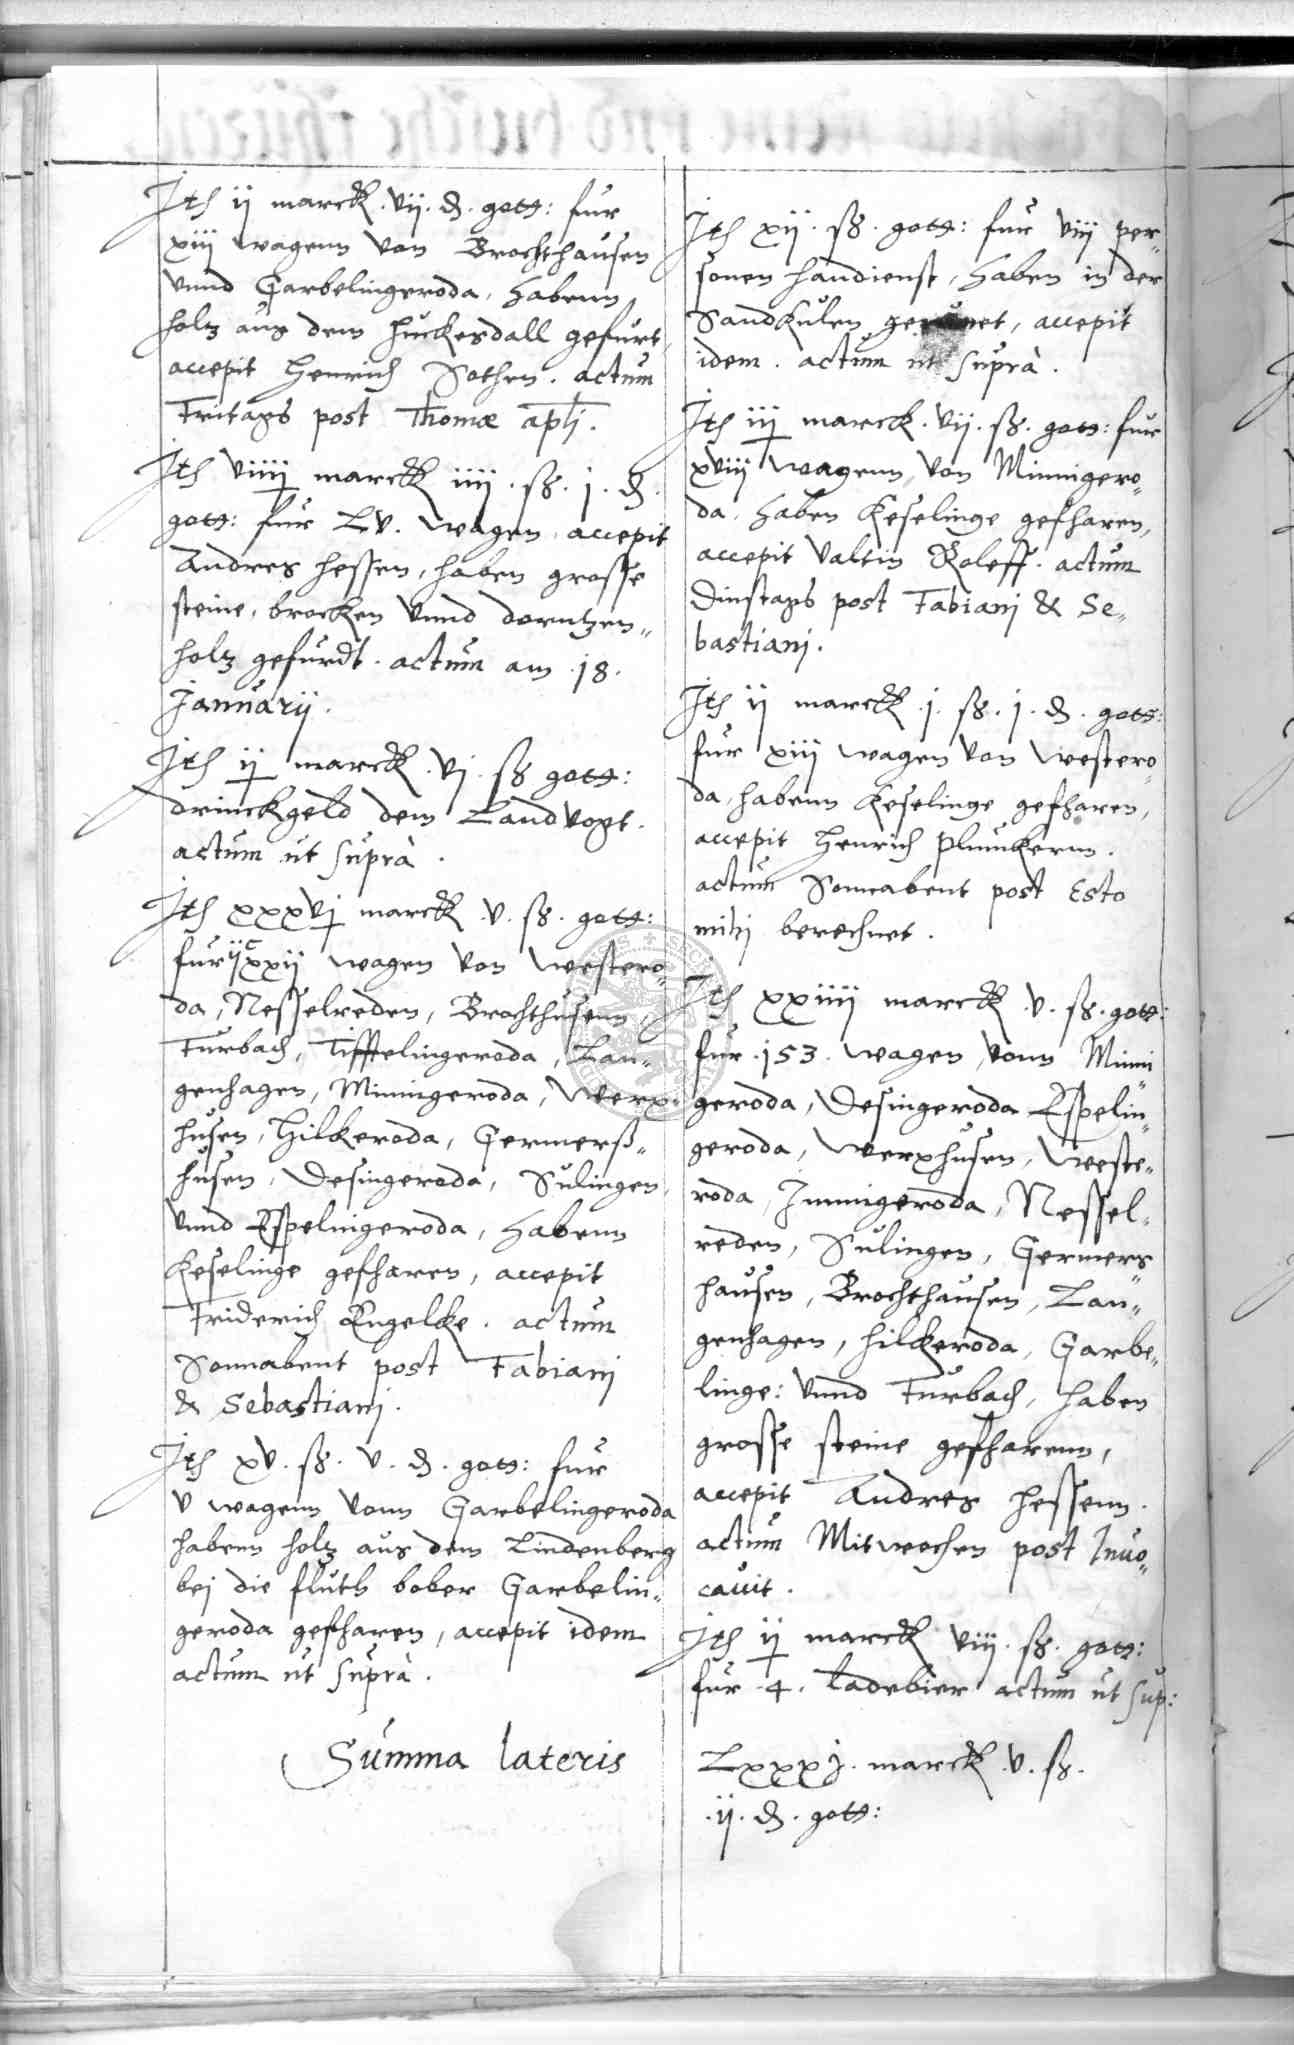 Ite ij marck . vij . d . gott: fur
xiij wagenn von Brochthausen
vnnd Garbelingeroda, habenn
holtz aus dem Huckesdall gefurt,
accepit Henrich Sothen . actum
Fritags post Thomæ apli .
Ite viiij marck iiij . ß . j . d .
gott: fur Lv . wagen accepit
Andres Hessen, haben grosse
steine, brocken vnnd dorntzen„
holtz gefurdt . actum am .18.
Januarij .
Ite ij marck . vj . ß gott:
drinckgeld dem Landvogt .
actum ut suprà .
Ite xxxvj marck . v . ß . gott:
fur ijᶜxxij wagen von Westero„
da, Nesselreden, Brochthusenn,
Furbach, Tifftelingeroda, Lan„
genhagen, Minnigeroda, Werx„
husen, Hilkeroda, Germerß„
husen, Desingeroda, Sulingen,
vnnd Espelingeroda, habenn
Keselinge gefharen, accepit
Friderich Engelcke . actum
Sonnabent post Fabianj
& Sebastianj .
Ite xv . ß . v . d . gott: fur
v wagenn vonn Garbelingeroda
habenn holtz aus dem Lindenberg
bej die fluth bober Garbelin„
geroda gefharen, accepit idem
actum ut suprà .
Summa lateris
Ite xij . ß . gott: fur viij per„
sonen handienst, haben in der
Sandkulen, accepit
idem . actum ut suprà .
Ite iij marck . vij . ß . gott: fur
xviij wagenn, von Minnigero„
da, haben Keselinge gefharen,
accepit Valtin Roleff . actum
Dinstags post Fabianj & Se„
bastianj .
Ite ij marck . j . ß . j . d . gott:
fur xiij wagen von Westero„
da, habenn Keselinge gefharen,
accepit Henrich Plunkenn .
actum Sonnabent post Esto
mihj berechnet .
Ite xxiiij marck . v . ß . gott:
fur .153. wagen vonn Minni„
geroda, Desingeroda Espelin„
geroda, Werxhusen, Weste„
roda, Immigeroda, Nessel„
reden, Sulingen, Germers„
hausen, Brochthausen, Lan„
genhagen, Hilckeroda, Garbe„
linge: vnnd Furbach, haben
grosse steine gefharenn,
accepit Andres Hessenn .
actum Mitwochen post Inuo„
cauit .
Ite ij marck viij . ß . gott:
fur .4. ladebier actum ut sup:
Lxxxj . marck . v . ß .
. ij . d . gott: